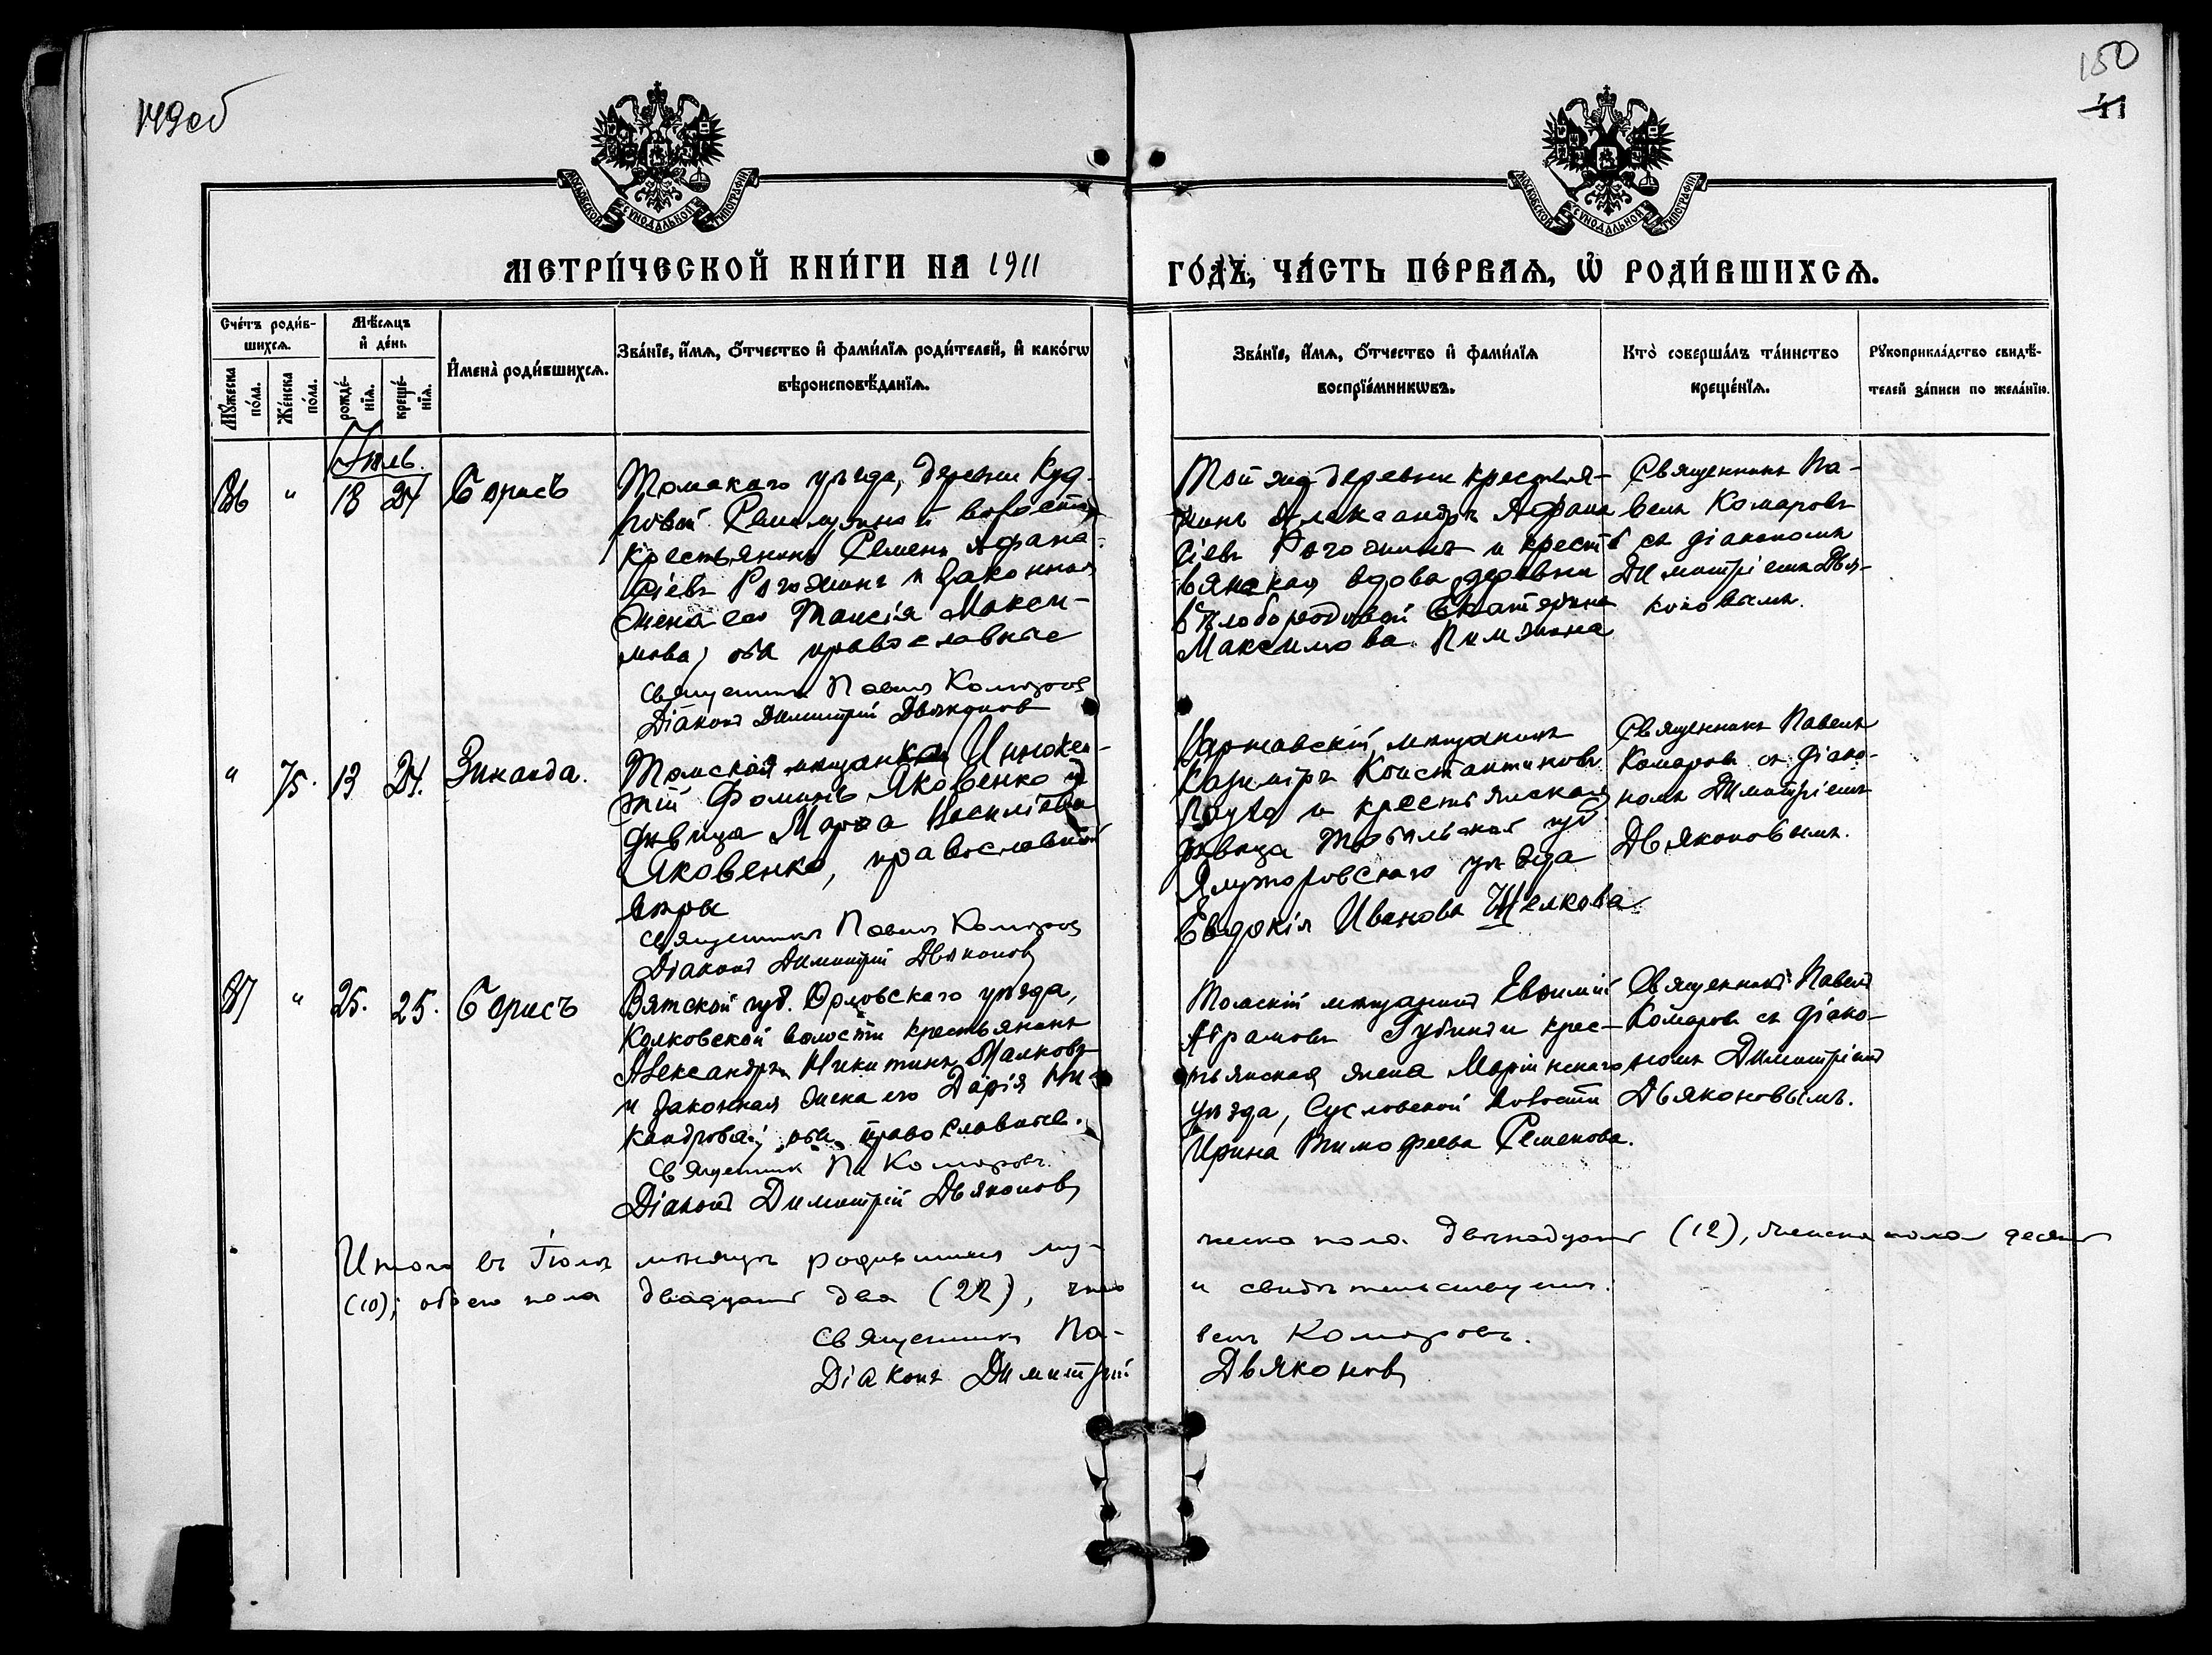 149об
150
41
МОСКОВСКОЙ СУНОДАЛЬНОЙ ТИПОГРАФІИ
МОСКОВСКОЙ СУНОДАЛЬНОЙ ТИПОГРАФІИ
МЕТРИ́ЧЕСКОЙ КНИ́ГИ НА 1911
ГО́ДЪ, ЧА́СТЬ ПЕ́РВАѦ, Ѡ РОДИ́ВШИХСѦ.
Сче́тъ роди́в-
шихсѧ.
Мѣ́сѧцъ
и҆ де́нь
Мꙋ́жеска
по́ла.
Же́нска
по́ла.
рожде́-
нїѧ.
креще́-
нїѧ.
И҆мена̀ роди́вшихсѧ.
Зва́нїе, и҆́мѧ, о҆́тчество и҆ фами́лїѧ роди́телей, и҆ како́гѡ
вѣроисповѣ́данїѧ.
Зва́нїе, и҆́мѧ, о҆́тчество и҆ фами́лїѧ
воспрїе́мникѡвъ.
Кто̀ соверша́лъ та́инство
креще́нїѧ.
Рꙋкоприкла́дство свидѣ́-
телей за́писи по жела́нїю.
Іюль.
86 " 18 24 Борисъ
Томскаго уѣзда, деревни Куд-
ровой Семилужной волости
крестьянинъ Семенъ Афана-
сіевъ Рогожинъ и законная
жена его Таисія Макси-
мова, оба православные
Священникъ Павелъ Комаровъ
Діаконъ Димитрій Дьяконовъ
Той же деревни крестья-
нинъ Александръ Афана
сіевъ Рогожинъ и кресть
ьянская вдова деревни
Бѣлобородовой Екатерина
Максимова
Священникъ Па-
велъ Комаровъ
съ діакономъ
Димитріемъ Дья-
коновымъ.
" 75. 13 24. Зинаида.
Томская мѣщанка Инокен-
тій Фоминъ Яковенко и
дѣвица Марѳа Василіева
Яковенко, православной
вѣры
Священникъ Павелъ Комаровъ
Діаконъ Димитрій Дьяконовъ
мѣщанинъ
Казиміръ Константиновъ
и крестьянская
дѣвица Тобольской губ
Ялуторовскаго уѣзда
Евдокія Иванова Щелкова
Священникъ Павелъ
Комаровъ съ діако-
номъ Димитріемъ
Дьяконовымъ.
87 " 25. 25. Борисъ
Вятской губ. Орловскаго уѣзда,
Колковской волости крестьянинъ
Александръ Никитинъ Малковъ
и законная жена его Дарія Ни-
кандрова, оба православные.
Священникъ Па Комаровъ.
Діаконъ Димитрій Дьяконовъ
Томскій мѣщанинъ Евѳимій
Абрамовъ Губинъ и крес-
тьянская жена Маріинскаго
уѣзда, Сусловской волости
Ирина Тимофеева Семенова.
Священникъ Павелъ
Комаровъ съ діако-
номъ Димитріемъ
Дьяконовымъ.
Итого въ Іюлѣ мѣсяцѣ родившихся му-
жеска пола двѣнадцать (12), женска пола десять
(10); обоего пола двадцать два (22), что
и свидѣтельствуемъ.
Священникъ Па-
велъ Комаровъ.
Діаконъ Димитрій
Дьяконовъ